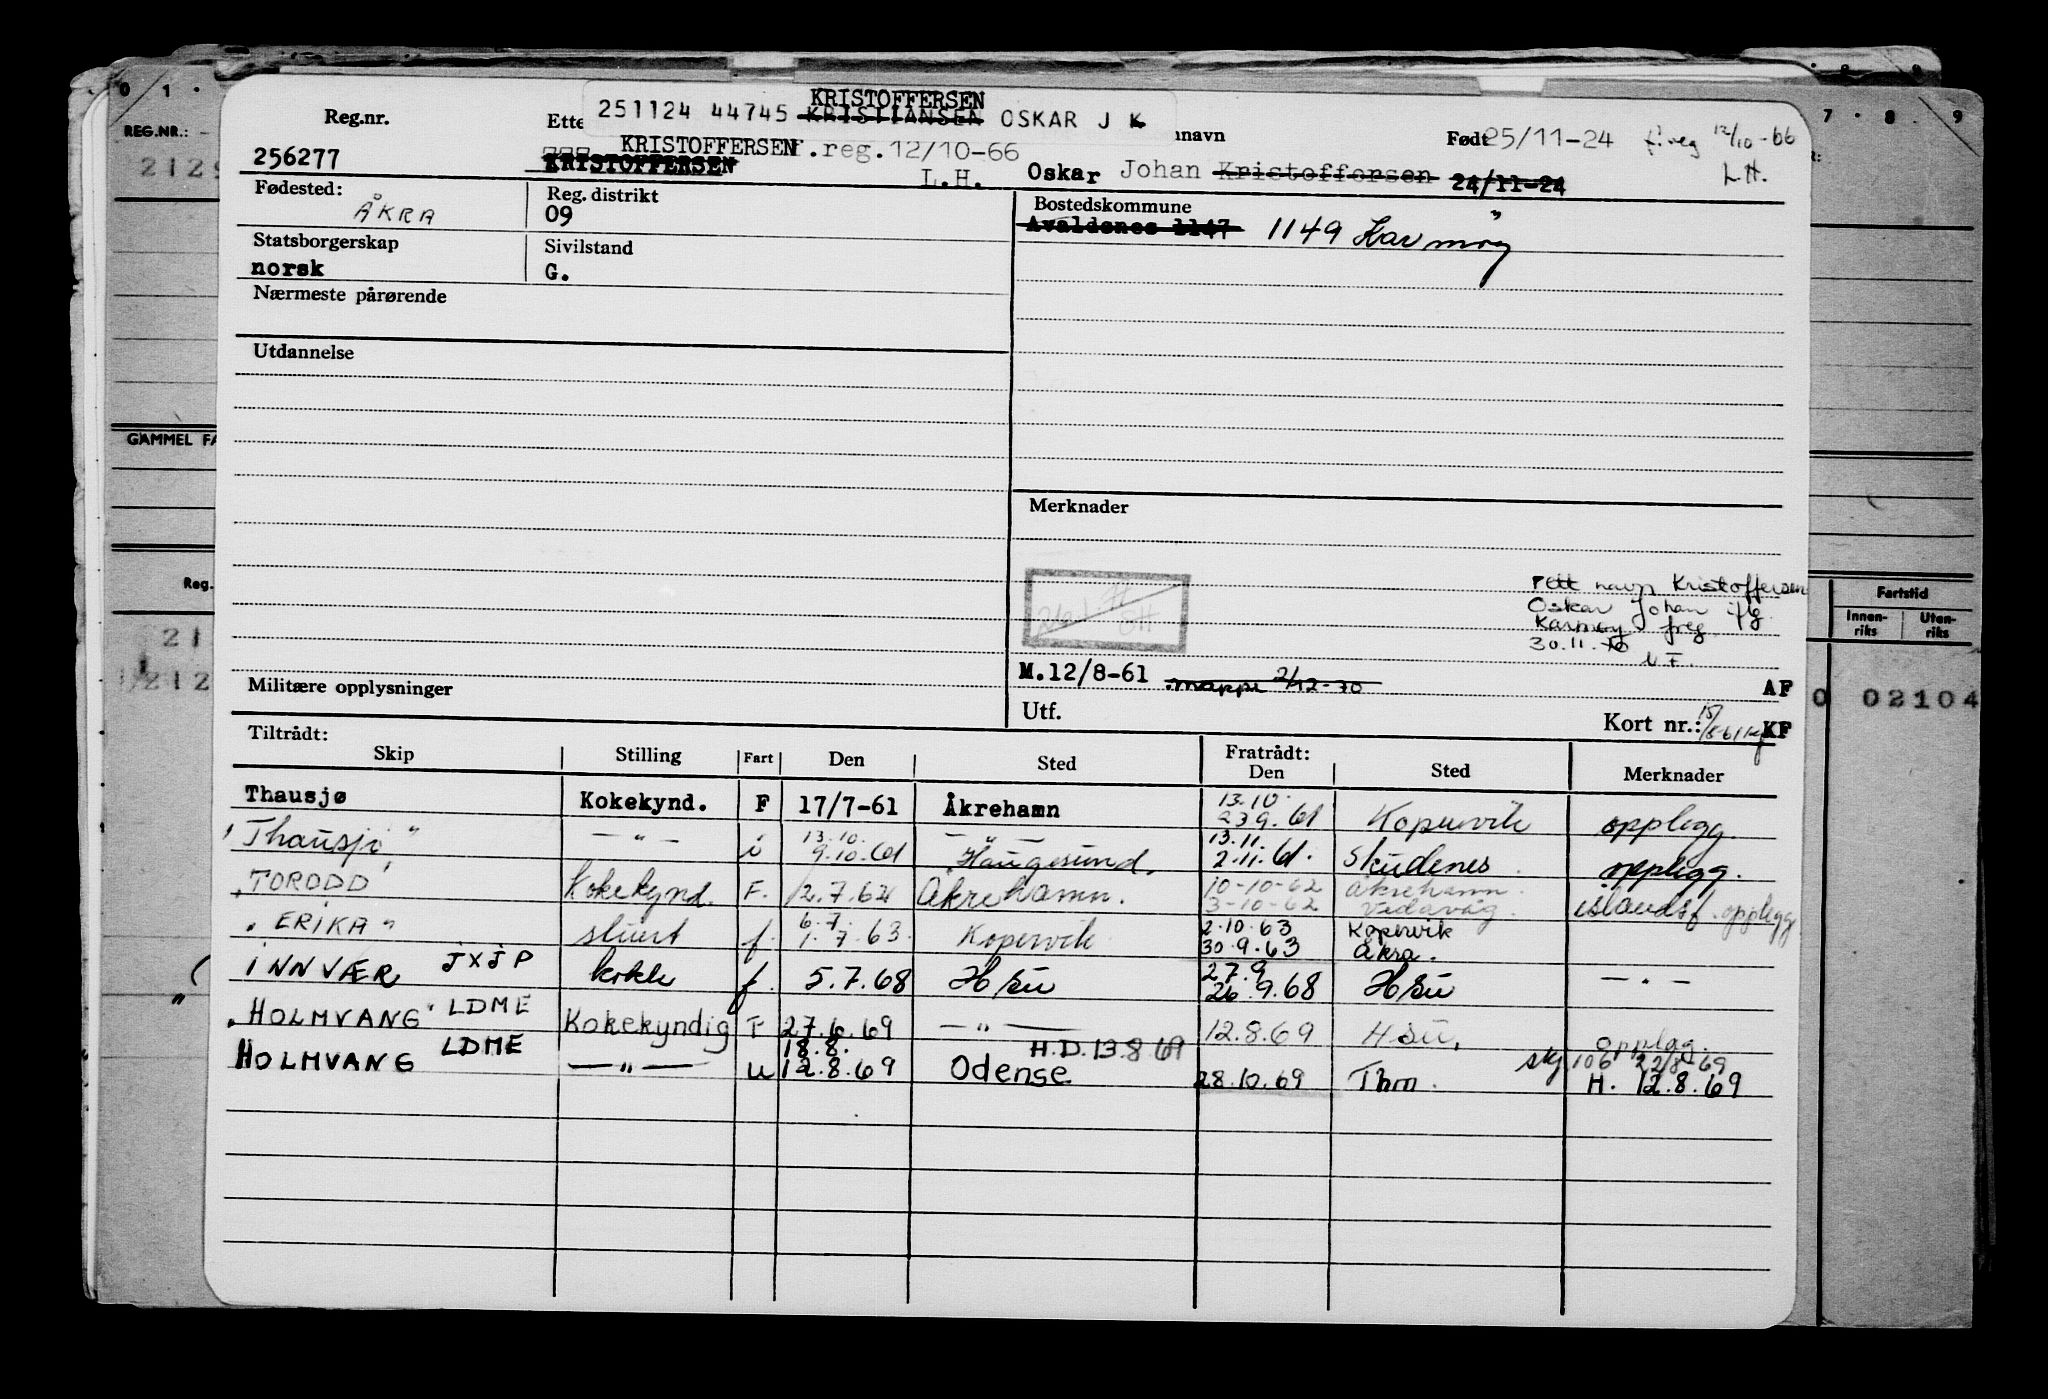 KRISTOFFERSEN
251124 44745 KRISTIANSEN OSKAR J K
Reg.nr. Ette nnavn Født 25/11-24 f.reg 12/10-66
256277 KRISTOFFERSEN f.reg.12/10-66 L.H.
KRISTOFFERSEN L.H. Oskar Johan Kristoffersen 24/11-24
Fødested: ÅKRA Reg. distrikt Bostedskommune
09 Avaldsnes 1147 1149 Karmøy
Statsborgerskap Sivilstand
norsk G.
Nærmeste pårørende
Utdannelse
Merknader
Rett navn Kristoffersen
Oskar Johan iflg
Karmøy freg
30.11.70
M.12/8-61 mappe 2/12-70 AF
Militære opplysninger Utf. Kort nr.: KF
Tiltrådt: Fratrådt:
Skip Stilling Fart Den Sted Den Sted Merknader
Thausjø Kokekynd. F 17/7-61 Åkrehamn 13.10. 23.9.61 Kopervik opplegg.
"Thausjø" — " — u 13.10. 9.10.61 — " — Haugesund. 13.11. 2.11.61. Skudenes opplegg.
"TORODD" Kokekynd. F. 2.7.62 Åkrehamn. 10-10-62 Åkrehamn 3-10-62 Vedavåg. islandsf. opplegg
"ERIKA" stuert f. 6.7. 1.7.63. Kopervik 2.10.63 Kopervik 30.9.63 Åkra.
INNVÆR JXJP kokk f. 5.7.68 H su 27.9 26.9.68 H su — " —
"HOLMVANG" LDME Kokekyndig F 27.6.69 — " — 12.8.69 H su. opplag.
HOLMVANG LDME — " — u 18.8. 12.8.69 H.D. 13.8.69 Odense 28.10.69 Thm. skj 106 22/8-69 H. 12.8.69
REG.NR.:
GAMMEL FA
Reg.
Fartstid
Innen-riks Uten-riks
0 02104